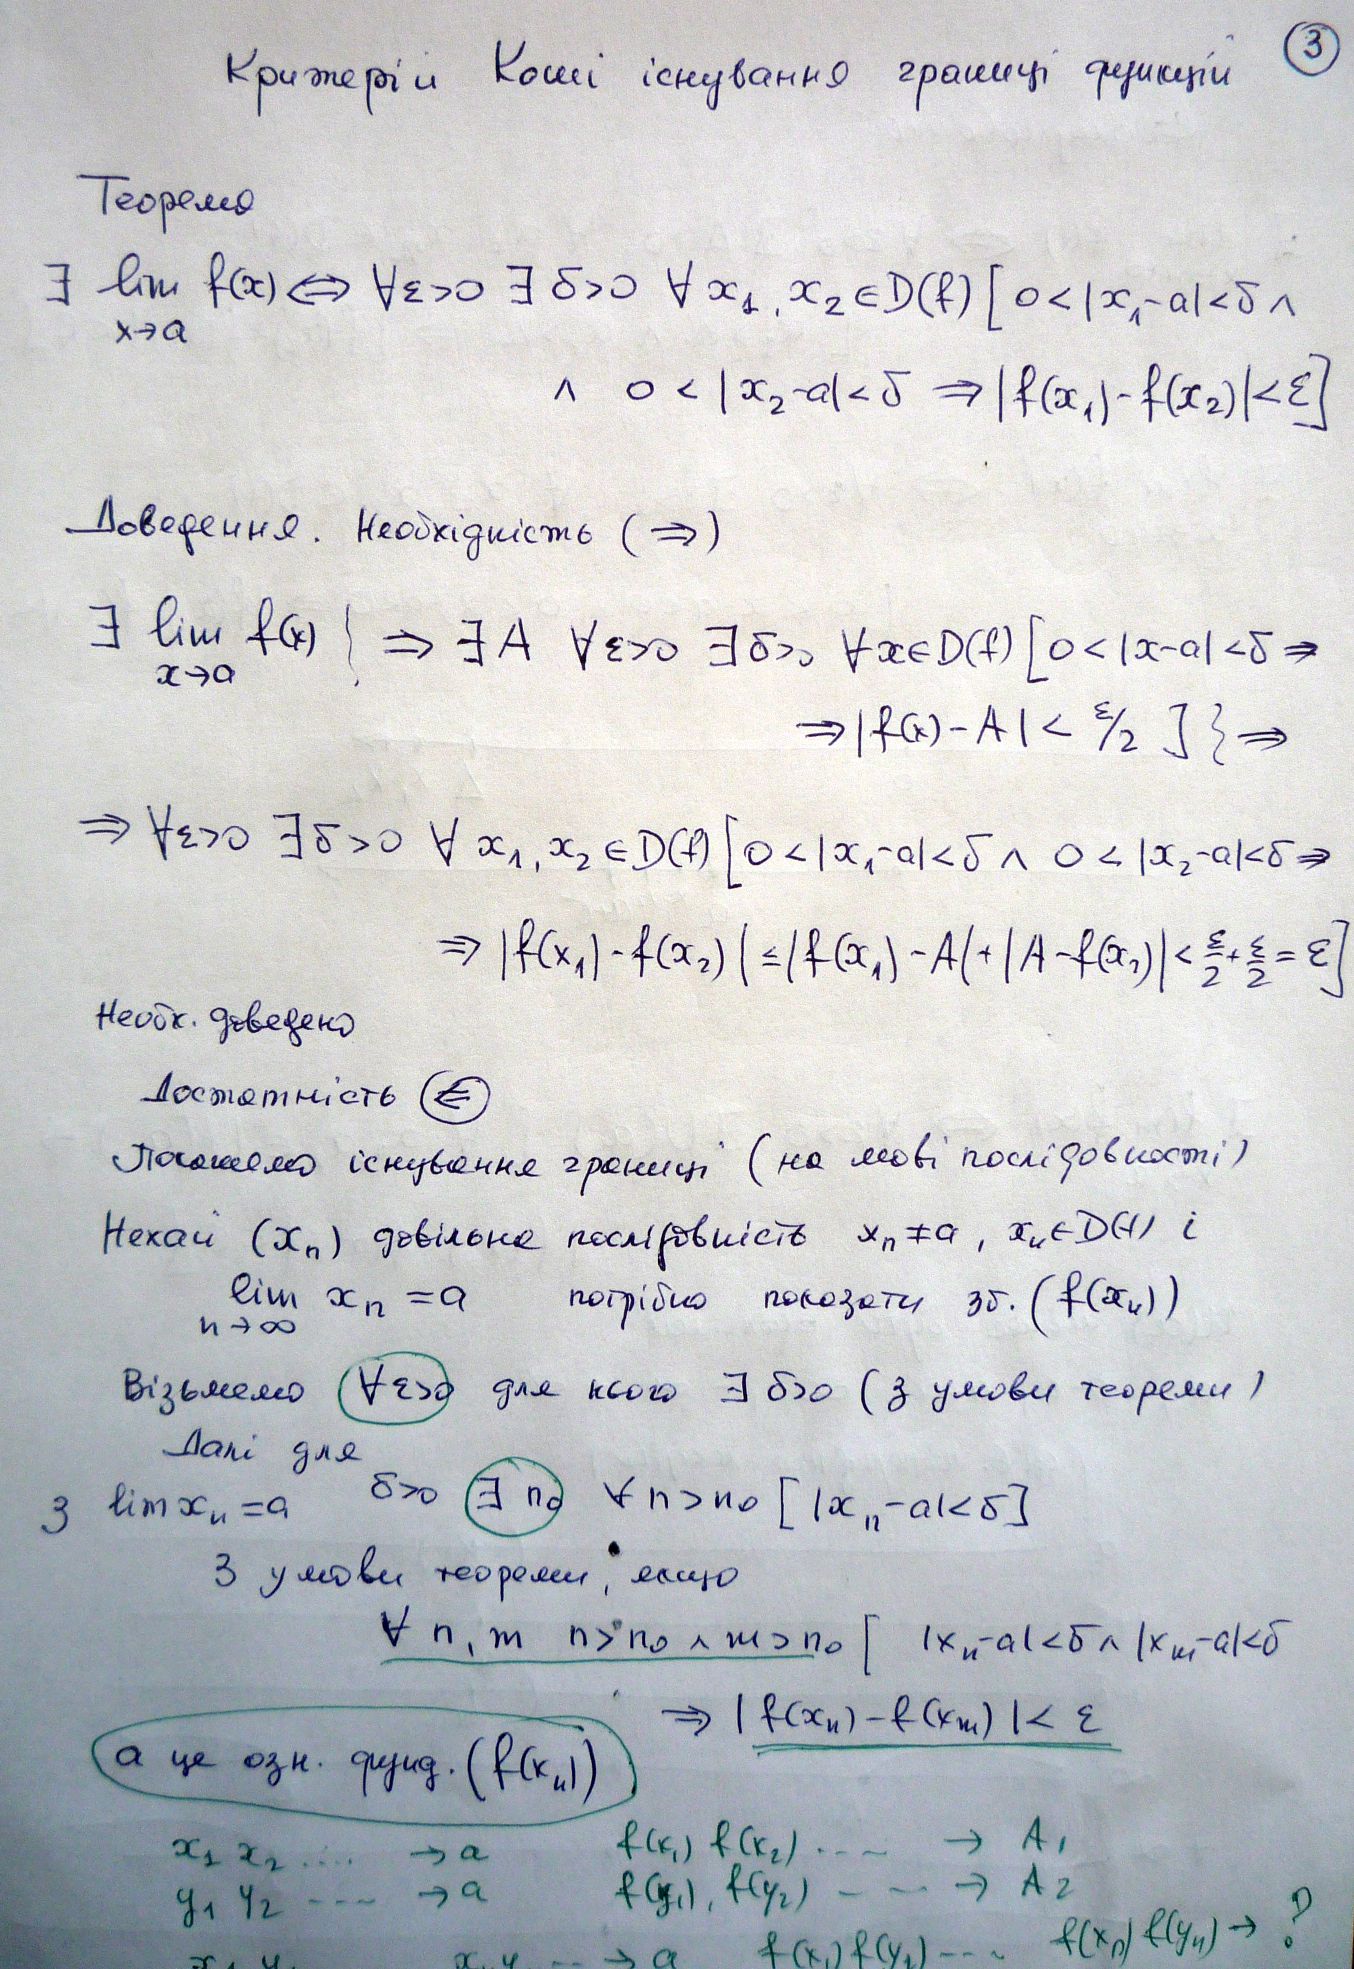 3
Критерій Коші існування границі функцій
Теорема
∃ lim f(x) ⇔ ∀ε>0 ∃δ>0 ∀x₁, x₂∈D(f) [0<|x₁-a|<δ ∧
x→a
∧ 0<|x₂-a|<δ ⇒ |f(x₁)-f(x₂)|<ε]
Доведення. Необхідність (⇒)
∃ lim f(x) } ⇒ ∃A ∀ε>0 ∃δ>0 ∀x∈D(f) [0<|x-a|<δ ⇒
x→a
⇒|f(x)-A|< ε/2 ] } ⇒
⇒ ∀ε>0 ∃δ>0 ∀x₁, x₂∈D(f) [0<|x₁-a|<δ ∧ 0<|x₂-a|<δ ⇒
⇒ |f(x₁)-f(x₂)| ≤ |f(x₁)-A|+|A-f(x₂)| < ε/2 + ε/2 = ε]
Необх. доведено
Достатність (⇐)
Покажемо існування границі (на мові послідовності)
Нехай (xₙ) довільна послідовність xₙ≠a, xₙ∈D(f) і
lim xₙ = a потрібно показати зб. (f(xₙ))
n→∞
Візьмемо ∀ε>0 для нього ∃δ>0 (з умови теореми)
Далі для
з lim xₙ=a δ>0 ∃ n₀ ∀n>n₀ [|xₙ-a|<δ]
З умови теореми, якщо
∀ n, m n>n₀ ∧ m>n₀ [ |xₙ-a|<δ ∧ |xₘ-a|<δ
⇒ |f(xₙ)-f(xₘ)|< ε
а це озн. фунд. (f(xₙ))
x₁ x₂ .... → a f(x₁) f(x₂) .... → A₁
y₁ y₂ .... → a f(y₁), f(y₂) .... → A₂
x₁ y₁ xₙ yₙ .. → a f(x₁) f(y₁) .... f(xₙ) f(yₙ) → ?